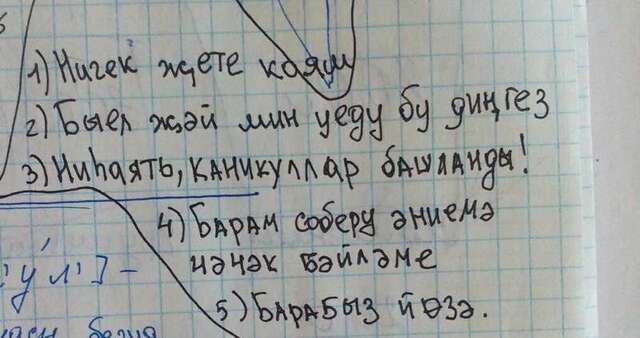 1) Ничек җете каяш
2) Быел җәй мин уеду бу диңгез
3) Ниһаять, каникуллар башланды!
4) Барам соберу әниемә
чәчәк бәйләме
5) Барабыз йөзә.